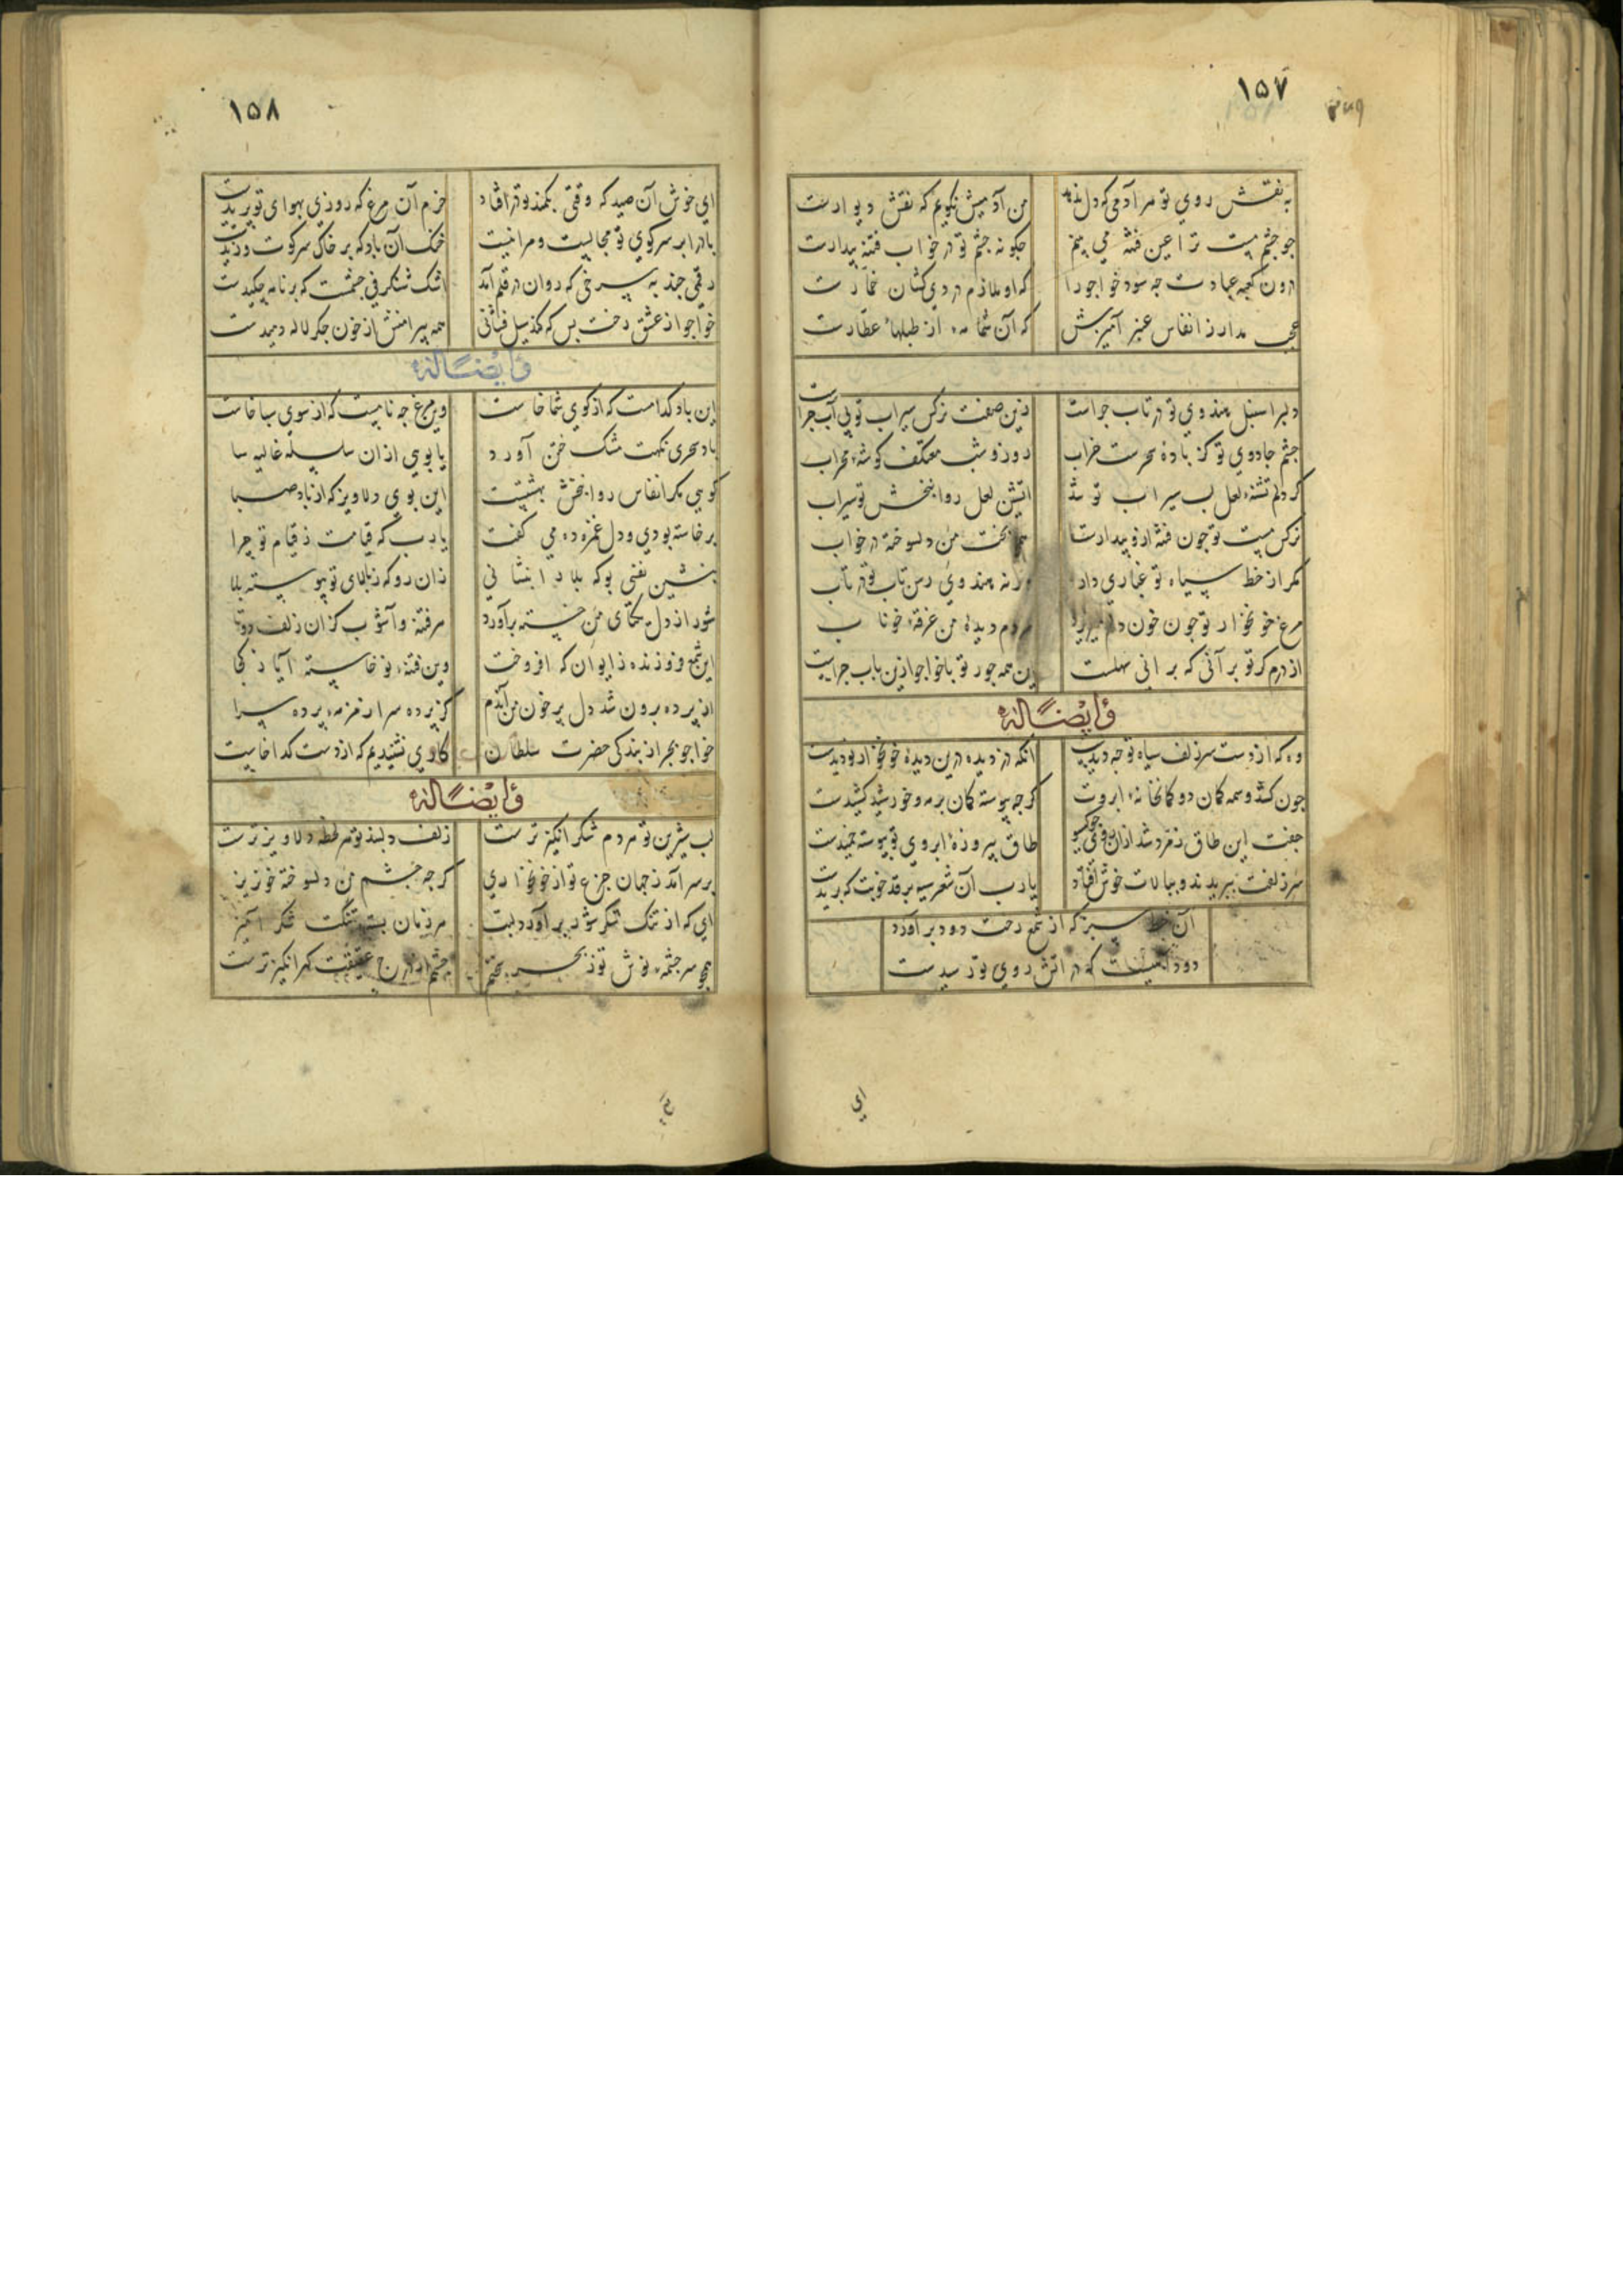 ۱۵۷
به نقش روی تو هر آدمی که دل ندهد
من آدمیش نگویم که نقش دیوارست
جو جشم مست ترا عین فتنه می بینم
جکونه جشم تو در خواب فتنه بیدارست
درون کعبه عبادت جه سود خواجو را
که او ملازم دردی کشان خمارست
عجب مدار ز انفاس عنبر آمیزش
که آن شمامه از طبلهاء عطارست
دلبرا سنبل هندوی تو در تاب جراست
زین صفت نرکس سیراب تو بی آب جراست
جشم جادوی تو کز بادۀ سحرست خراب
روز و شب معتکف کوشۀ محراب
کر دلم تشنۀ لعل لب سیراب تو شد
آتشین لعل روانبخش تو سیراب
نرکس مست تو جون فتنه ازو بیدارست
بخت من دلسوخته در خواب
مکر از خط سیاه تو غباری دارد
ورنه هندوی رسن تاب تو در تاب
مرغ خونخوار تو جون خون دلم میریزد
مردم دیدۀ من غرقۀ خوناب
از درم کر تو برانی که برانی سهلست
این همه جور تو با خواجو ازین باب جراست
وایضًا له
وه که از دست سر زلف سیاه تو جه دیدست
آنکه دزدیده درین دیدۀ خونخوار تو دیدست
جون کشد وسمه کمان دو کمانخانۀ ابروت
کرجه پیوسته کمان بر مه و خورشید کشیدست
جفت این طاق زمرد شد ازان روی جو کیسو
طاق پیروزۀ ابروی تو پیوسته خمیدست
سر زلفت ببریدند و ببالات خوش افتاد
یارب آن شعر سیه بر قد خوبت که بریدست
آن خط سبز که از شمع رخت دود برآورد
دود دلهیست که در آتش روی تو رسیدست
ای
۱۵۸
ای خوش آن صید که وقتی بکمند تو درافتاد
خرم آن مرغ که روزی بهوای تو پریدست
باد را بر سر کوی تو مجالیست و مرا نیست
خنک آن باد که بر خاک سر کوت وزیدست
رقمی جند به سرخی که روان در قلم آمد
اشک شنکرفی جشمست که بر نامه جکیدست
خواجو از عشق رخت بس که کند سیل فشانی
همه پیرامنش از خون جکر لاله دمیدست
وایضًا له
این باد کدامست که از کوی شما خاست
وین مرغ جه نامیست که از سوی سبا خاست
باد سحری نکهت مشک ختن آورد
یا بوی ازان سلسلۀ غالیه سا
کویی مکر انفاس روانبخش بهشتیست
این بوی دلاویز که از باد صبا
برخاسته بودی و دل غمزده می کفت
یارب که قیامت ز قیام تو جرا
بنشین نفسی بو که بلا را بنشانی
زان رو که ز بالای تو پیوسته بلا
شور از دل یکتای من خسته برآورد
هر فتنه و آشوب کزان زلف دوتا
این شمع فروزنده ز ایوان که افروخت
وین فتنۀ نوخاسته آیا ز کجا
از پرده برون شد دل پر خون من آندم
کز پرده سرا زمزمۀ پرده سرا
خواجو بجز از بندکی حضرت سلطان
کاری نشنیدیم که از دست کدا خاست
وایضًا له
لب شیرین تو هر دم شکر انکیزترست
زلف دلبند تو هر لحظه دلاویزترست
بر سر آمد ز جهان جزع تو از خونخواری
کرجه جشم من دلسوخته خونریز
ای که از تنک شکر شور برآورد لبت
هر زمان بستۀ تنکت شکر آمیز
همجو سرجشمۀ نوش تو ز بحر
جشم از درج عقیقت کهر انکیزترست